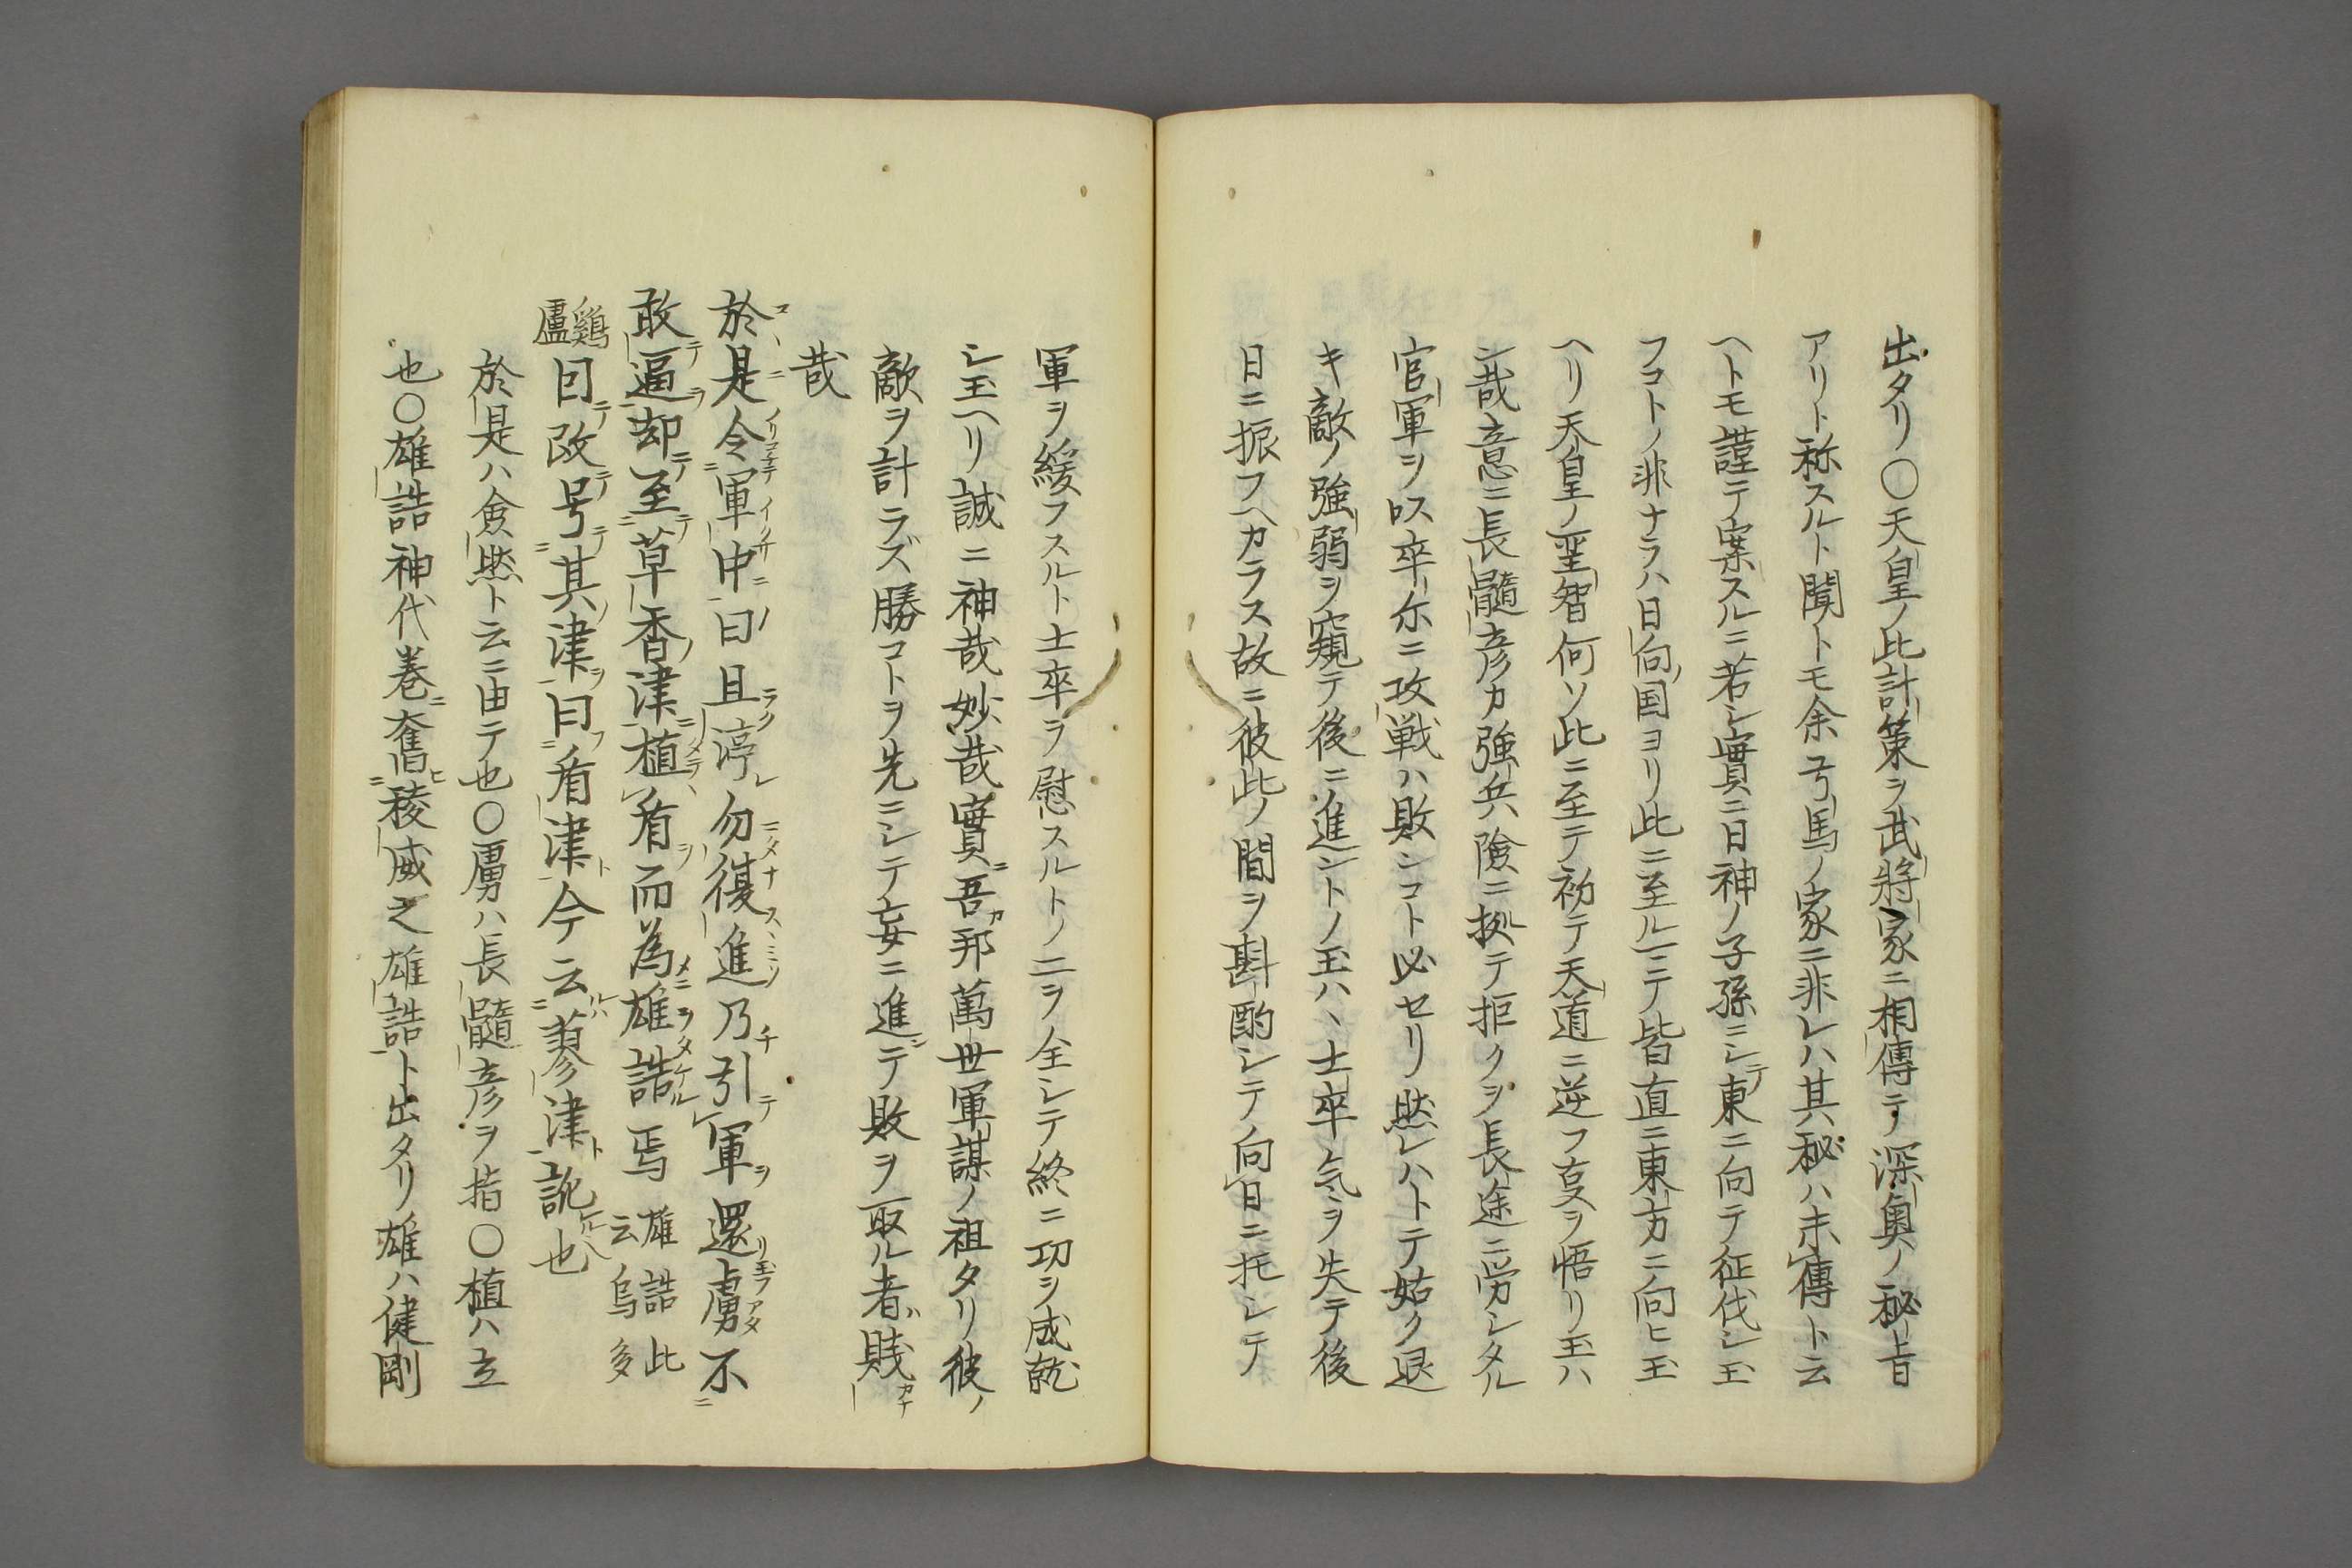 出タリ〇天皇ノ此計策ヲ武將家ニ相傳テ深奥ノ秘旨
アリト称スルト聞トモ余弓馬ノ家ニ非レハ其秘ハ未傳ト云
ヘトモ謹テ案スルニ若シ實ニ日神ノ子孫ニシテ東ニ向テ征伐シ玉
フコトノ非ナラハ日向国ヨリ此ニ至ルニテ皆直ニ東方ニ向ヒ玉
ヘリ天皇ノ聖智何ソ此ニ至テ初テ天道ニ逆フ叓ヲ悟リ玉ハ
ン哉意ニ長髓彦カ強兵險ニ拠テ拒クヲ長途ニ労シタル
官軍ヲ以卒尓ニ攻戦ハ敗ンコト必セリ然レハトテ姑ク退
キ敵ノ強弱ヲ窺テ後ニ進ントノ玉ハヽ士卒気ヲ失テ後
日ニ振フヘカラス故ニ彼此ノ間ヲ斟酌シテ向日ニ托シテ
軍ヲ緩フスルト士卒ヲ慰スルトノ二ヲ全シテ終ニ功ヲ成就
シ玉ヘリ誠ニ神哉妙哉實ニ吾カ邦萬世軍謀ノ祖タリ彼ノ
敵ヲ計ラズ勝コトヲ先ニシテ妄ニ進デ敗ヲ取ル者ハ賎カナ
哉
於是令軍中曰且停勿復進乃引軍還虜不
敢逼却至草香津植盾而為雄誥焉雄誥此云烏多
鷄盧因改号其津曰盾津今云蓼津訛也
於是ハ僉然ト云ニ由テ也〇虜ハ長髓彦ヲ指〇植ハ立
也〇雄誥神代巻ニ奮稜威之雄誥ト出タリ雄ハ健剛